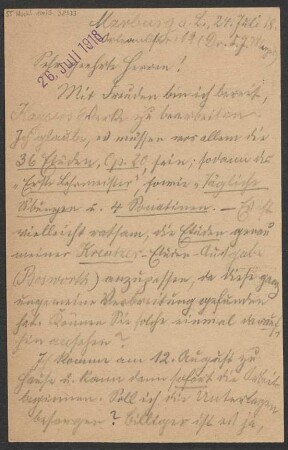 Marburg a. L., 24. Juli 18.
26. Juli 1918
Sehr geehrte Herren!
Mit Freuden bin ich bereit,
Kaysers Werke zu bearbeiten.
Ich glaube, es müssen vor allem die
36 Etüden, Op. 20, sein; sodann der
"Erste Lehrmeister", sowie "Tägliche
Übungen" u. 4 Sonatinen. — Es ist
vielleicht ratsam, die Etüden genau
meiner Kreutzer-Etüden-Ausgabe
(Bosworth) anzupassen, da diese ganz
ungemeine Verbreitung gefunden
hat. Können Sie solche einmal darauf
hin ansehen?
Ich komme am 12. August zu
Hause u. kann dann sofort die Arbeit
beginnen. Soll ich die Unterlagen
besorgen? Billiger ist es ja,